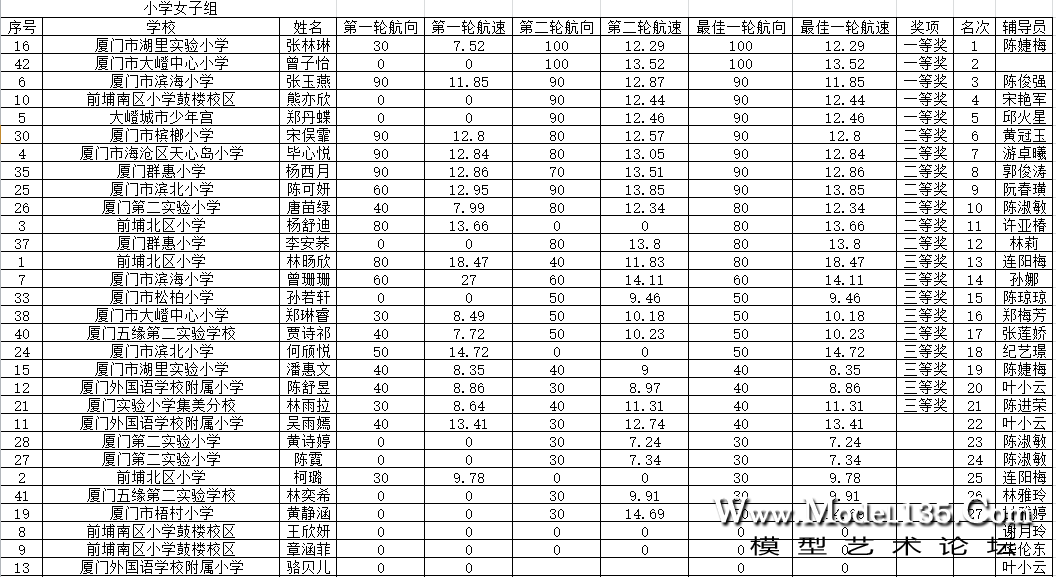 小学女子组
序号 学校 姓名 第一轮航向 第一轮航速 第二轮航向 第二轮航速 最佳一轮航向 最佳一轮航速 奖项 名次 辅导员
16 厦门市湖里实验小学 张林琳 30 7.52 100 12.29 100 12.29 一等奖 1 陈婕梅
42 厦门市大嶝中心小学 曾子怡 0 0 100 13.52 100 13.52 一等奖 2
6 厦门市滨海小学 张玉燕 90 11.85 90 12.87 90 11.85 一等奖 3 陈俊强
10 前埔南区小学鼓楼校区 熊亦欣 0 0 90 12.44 90 12.44 一等奖 4 宋艳军
5 大嶝城市少年宫 郑丹蝶 0 0 90 12.46 90 12.46 一等奖 5 邱火星
30 厦门市槟榔小学 宋俣霏 90 12.8 80 12.57 90 12.8 二等奖 6 黄冠玉
4 厦门市海沧区天心岛小学 毕心悦 90 12.84 80 13.05 90 12.84 二等奖 7 游卓曦
35 厦门群惠小学 杨西月 90 12.86 70 13.51 90 12.86 二等奖 8 郭俊涛
25 厦门市滨北小学 陈可妍 60 12.95 90 13.85 90 13.85 二等奖 9 阮春璜
26 厦门第二实验小学 唐苗绿 40 7.99 80 12.34 80 12.34 二等奖 10 陈淑敏
3 前埔北区小学 杨舒迪 80 13.66 0 0 80 13.66 二等奖 11 许亚椿
37 厦门群惠小学 李安荞 0 0 80 13.8 80 13.8 二等奖 12 林莉
1 前埔北区小学 林旸欣 80 18.47 40 11.83 80 18.47 三等奖 13 连阳梅
7 厦门市滨海小学 曾珊珊 60 27 60 14.11 60 14.11 三等奖 14 孙娜
33 厦门市松柏小学 孙若轩 0 0 50 9.46 50 9.46 三等奖 15 陈琼琼
38 厦门市大嶝中心小学 郑琳睿 30 8.49 50 10.18 50 10.18 三等奖 16 郑梅芳
40 厦门五缘第二实验学校 贾诗祁 40 7.72 50 10.23 50 10.23 三等奖 17 张莲娇
24 厦门市滨北小学 何颀悦 50 14.72 0 0 50 14.72 三等奖 18 纪艺璟
15 厦门市湖里实验小学 潘惠文 40 8.35 40 9 40 8.35 三等奖 19 陈婕梅
12 厦门外国语学校附属小学 陈舒昱 40 8.86 30 8.97 40 8.86 三等奖 20 叶小云
21 厦门实验小学集美分校 林雨拉 30 8.64 40 11.31 40 11.31 三等奖 21 陈进荣
11 厦门外国语学校附属小学 吴雨嫣 40 13.41 30 12.74 40 13.41 22 叶小云
28 厦门第二实验小学 黄诗婷 0 0 30 7.24 30 7.24 23 陈淑敏
27 厦门第二实验小学 陈霓 0 0 30 7.34 30 7.34 24 陈淑敏
2 前埔北区小学 柯璐 30 9.78 0 0 30 9.78 25 连阳梅
41 厦门五缘第二实验学校 林奕希 0 0 30 9.91 30 9.91 26 林雅玲
19 厦门市梧村小学 黄静涵 0 0 30 14.69 婷
8 前埔南区小学鼓楼校区 王欣妍 0 0 0 0 0 0 谢月玲
9 前埔南区小学鼓楼校区 章涵菲 0 0 0 0 0 0 伦东
13 厦门外国语学校附属小学 骆贝儿 0 0 0 0 叶小云
Www.Model135.Com
模型艺术论坛